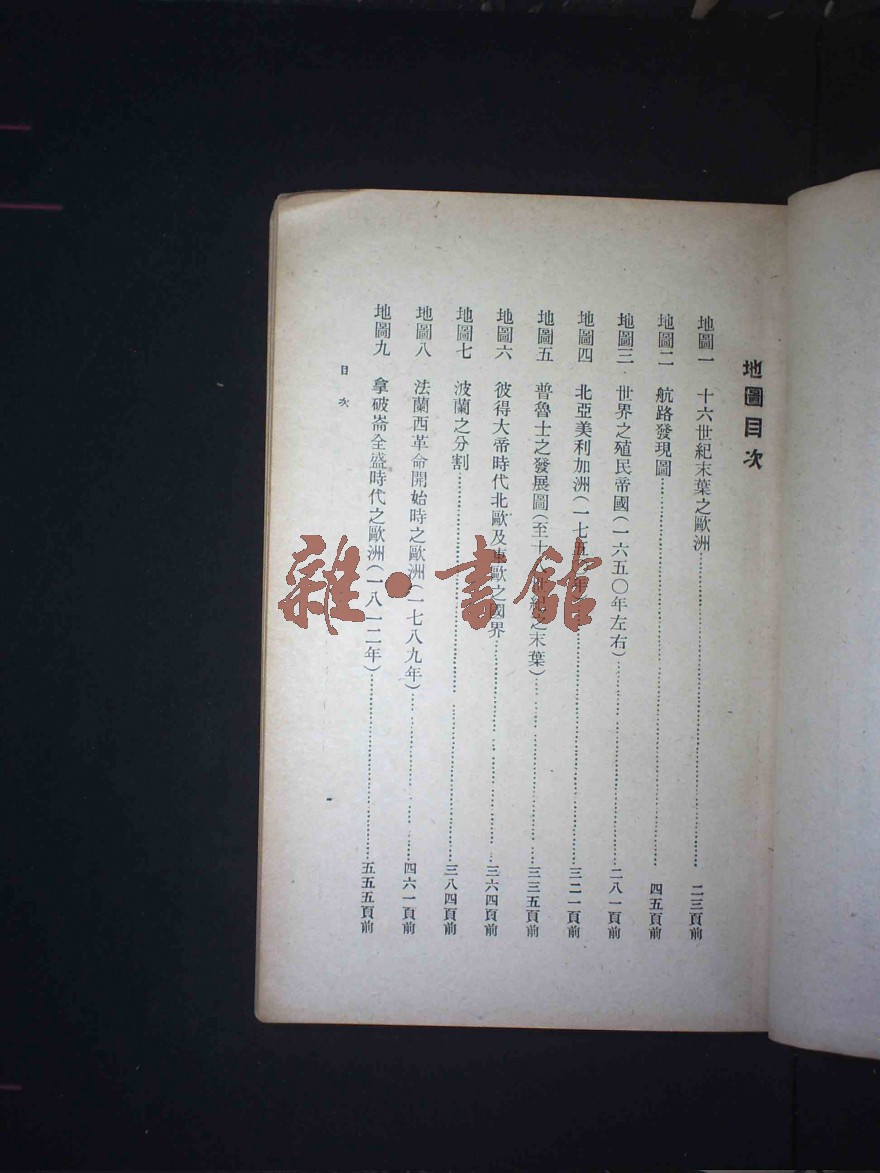 地圖目次
地圖一 十六世紀末葉之歐洲……二三頁前
地圖二 航路發現圖……四五頁前
地圖三 世界之殖民帝國(一六五〇年左右)……二八一頁前
地圖四 北亞美利加洲(一七五……三二一頁前
地圖五 普魯士之發展圖(至十八世紀之末葉)……三三五頁前
地圖六 彼得大帝時代北歐及東歐之國界……三六四頁前
地圖七 波蘭之分割……三八四頁前
地圖八 法蘭西革命開始時之歐洲(一七八九年)……四六一頁前
地圖九 拿破崙全盛時代之歐洲(一八一二年)……五五五頁前
目次
雜·書館